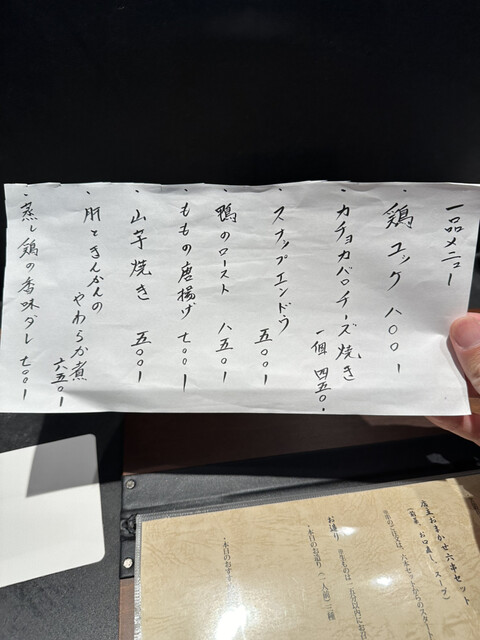 一品メニュー
・鶏ユッケ 八〇〇ー
・カチョカバロチーズ焼き
一個 四五〇・
・スナップエンドウ
五〇〇ー
・鴨のロースト 八五〇ー
・ももの唐揚げ 七〇〇ー
・山芋焼き 五〇〇ー
・肝ときんかんの
やわらか煮
六五〇ー
・蒸し鶏の香味ダレ 七〇〇ー
店主おまかせ六串セット
(前菜、お口直し、スープ)
お造り
・本日のお造り(一人前)三種